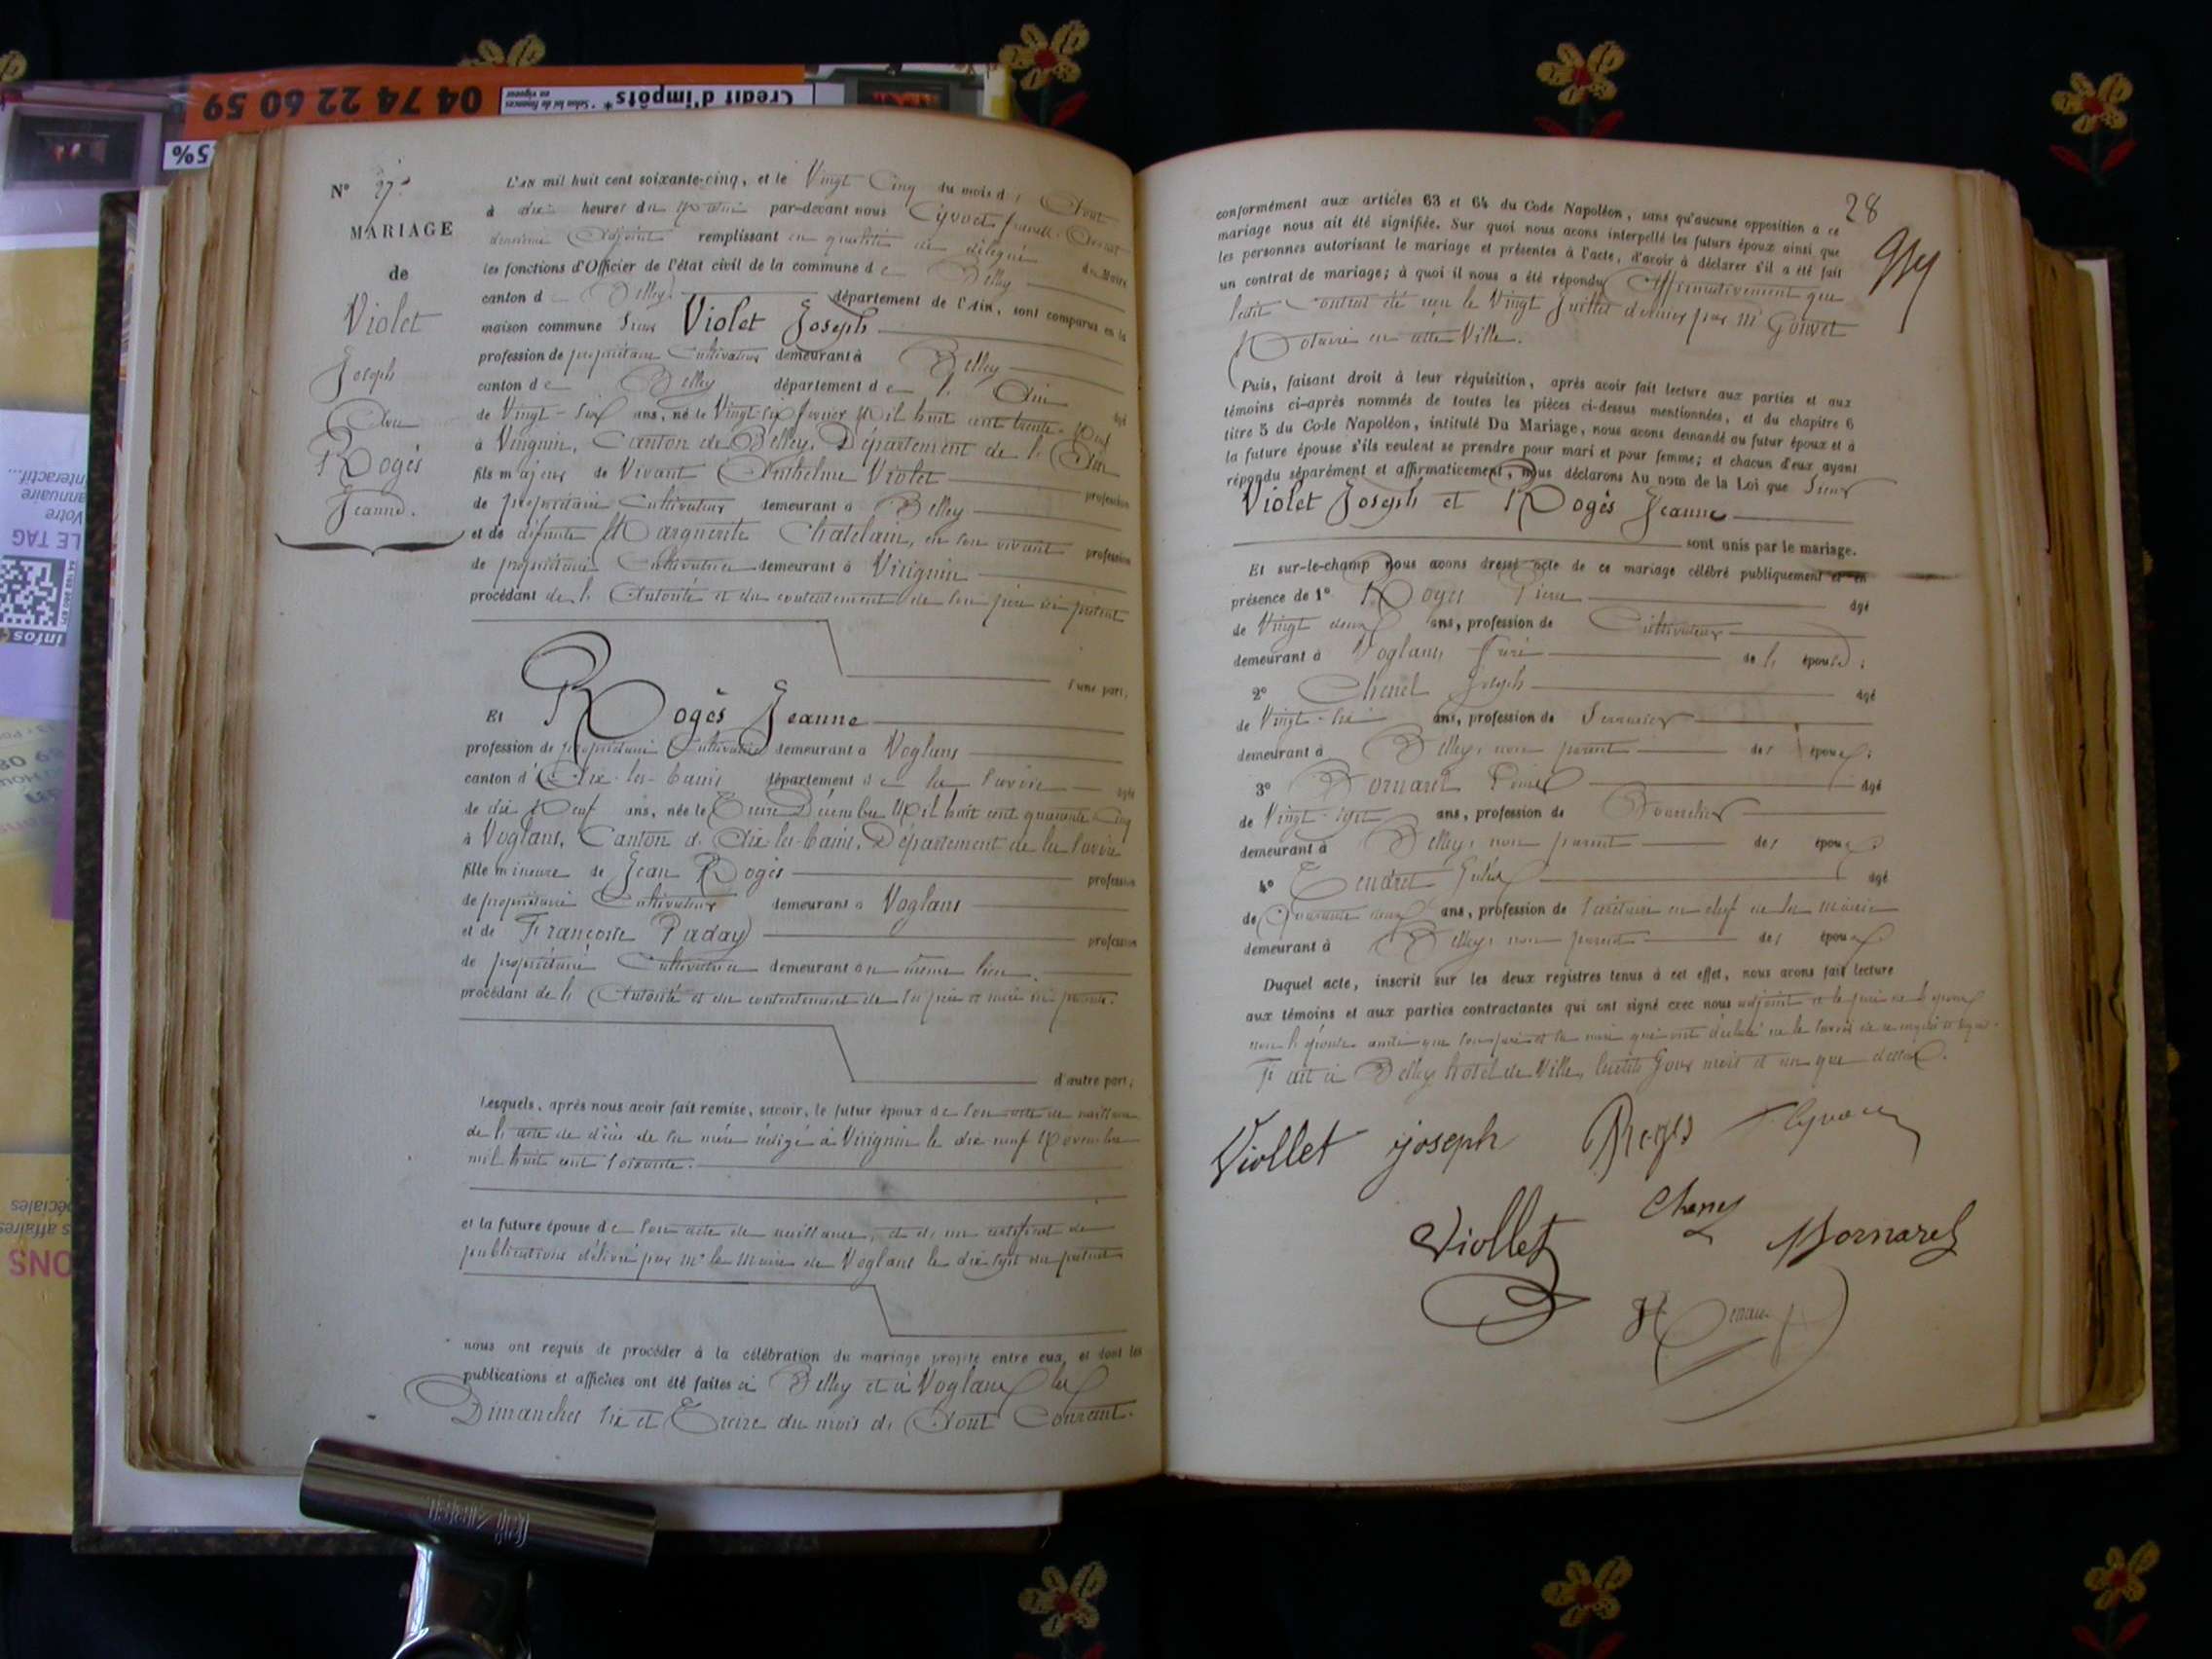 04 74 22 60 59
Crédit d'impôts*
*Selon loi de finances
en vigueur
5%
N° 27.
MARIAGE
de
Violet
Joseph
Avec
Rogès
Jeanne.
L'AN mil huit cent soixante-cinq, et le Vingt Cinq du mois d'Aout
à dix heures du Matin par-devant nous Cyvoct
deuxième Adjoint remplissant en qualité de délégué du Maire
les fonctions d'Officier de l'état civil de la commune de Belley
canton de Belley département de l'AIN, sont comparus en la
maison commune Sieur Violet Joseph
profession de propriétaire Cultivateur demeurant à Belley
canton de Belley département de l'Ain âgé
de Vingt-Six ans, né le Vingt-six fevrier Mil huit cent trente-Neuf
à Virignin, Canton de Belley, Département de l'Ain
fils majeur de Vivant Anthelme Violet profession
de propriétaire Cultivateur demeurant à Belley
et de défunte Marguerite Chatelain, en son vivant profession
de propriétaire Cultivatrice demeurant à Virignin
procédant de l'Autorité et du consentement de son père ici présent
d'une part,
Et Rogès Jeanne
profession de propriétaire Cultivatrice demeurant à Voglans
canton d'Aix-les-bains département de la Savoie âgée
de dix Neuf ans, née le Treize Décembre Mil huit cent quarante Cinq
à Voglans, Canton d'Aix-les-bains, Département de la Savoie
fille mineure de Jean Rogès profession
de propriétaire Cultivateur demeurant à Voglans
et de Françoise Paday profession
de propriétaire Cultivatrice demeurant au même lieu.
procédant de l'Autorité et du consentement de ses père et mère ici présents.
d'autre part;
Lesquels, après nous avoir fait remise, savoir, le futur époux de son acte de naissance
de l'acte de décès de sa mère rédigé à Virignin le dix-neuf Novembre
mil huit cent soixante.
et la future épouse de son acte de naissance, et d'un certificat de
publications délivré par Mr le Maire de Voglans le dix-sept du présent
nous ont requis de procéder à la célébration du mariage projeté entre eux, et dont les
publications et affiches ont été faites à Belley et à Voglans les
Dimanches Six et Treize du mois d'Aout Courant.
28
conformément aux articles 63 et 64 du Code Napoléon, sans qu'aucune opposition à ce
mariage nous ait été signifiée. Sur quoi nous avons interpellé les futurs époux ainsi que
les personnes autorisant le mariage et présentes à l'acte, d'avoir à déclarer s'il a été fait
un contrat de mariage; à quoi il nous a été répondu Affirmativement que
ledit Contrat été reçu le Vingt Juillet dernier par Mr Gonvet
Notaire en cette Ville.
Puis, faisant droit à leur réquisition, après avoir fait lecture aux parties et aux
témoins ci-après nommés de toutes les pièces ci-dessus mentionnées, et du chapitre 6
titre 5 du Code Napoléon, intitulé Du Mariage, nous avons demandé au futur époux et à
la future épouse s'ils veulent se prendre pour mari et pour femme; et chacun d'eux ayant
répondu séparément et affirmativement, nous déclarons Au nom de la Loi que Sieur
Violet Joseph et Rogès Jeanne
sont unis par le mariage.
Et sur-le-champ nous avons dressé acte de ce mariage célébré publiquement et en
présence de 1° Roges Pierre âgé
de Vingt deux ans, profession de Cultivateur
demeurant à Voglans frère de l'épouse;
2° Chenel Joseph âgé
de Vingt-six ans, profession de Serrurier
demeurant à Belley, non parent des époux;
3° Bornarel âgé
de Vingt-sept ans, profession de Bourrelier
demeurant à Belley, non parent des époux
4° Tenaret Jules âgé
de Quarante deux ans, profession de Secrétaire en chef de la Mairie
demeurant à Belley, non parent des époux.
Duquel acte, inscrit sur les deux registres tenus à cet effet, nous avons fait lecture
aux témoins et aux parties contractantes qui ont signé avec nous adjoint et le père de l'époux
non l'épouse ainsi que son père et sa mère qui ont déclaré ne le savoir de ce enquis et requis.
Fait à Belley hotel de Ville, lesdits Jour mois et an que dessus.
Viollet joseph Roges
Viollet
Chenel
Bornarel